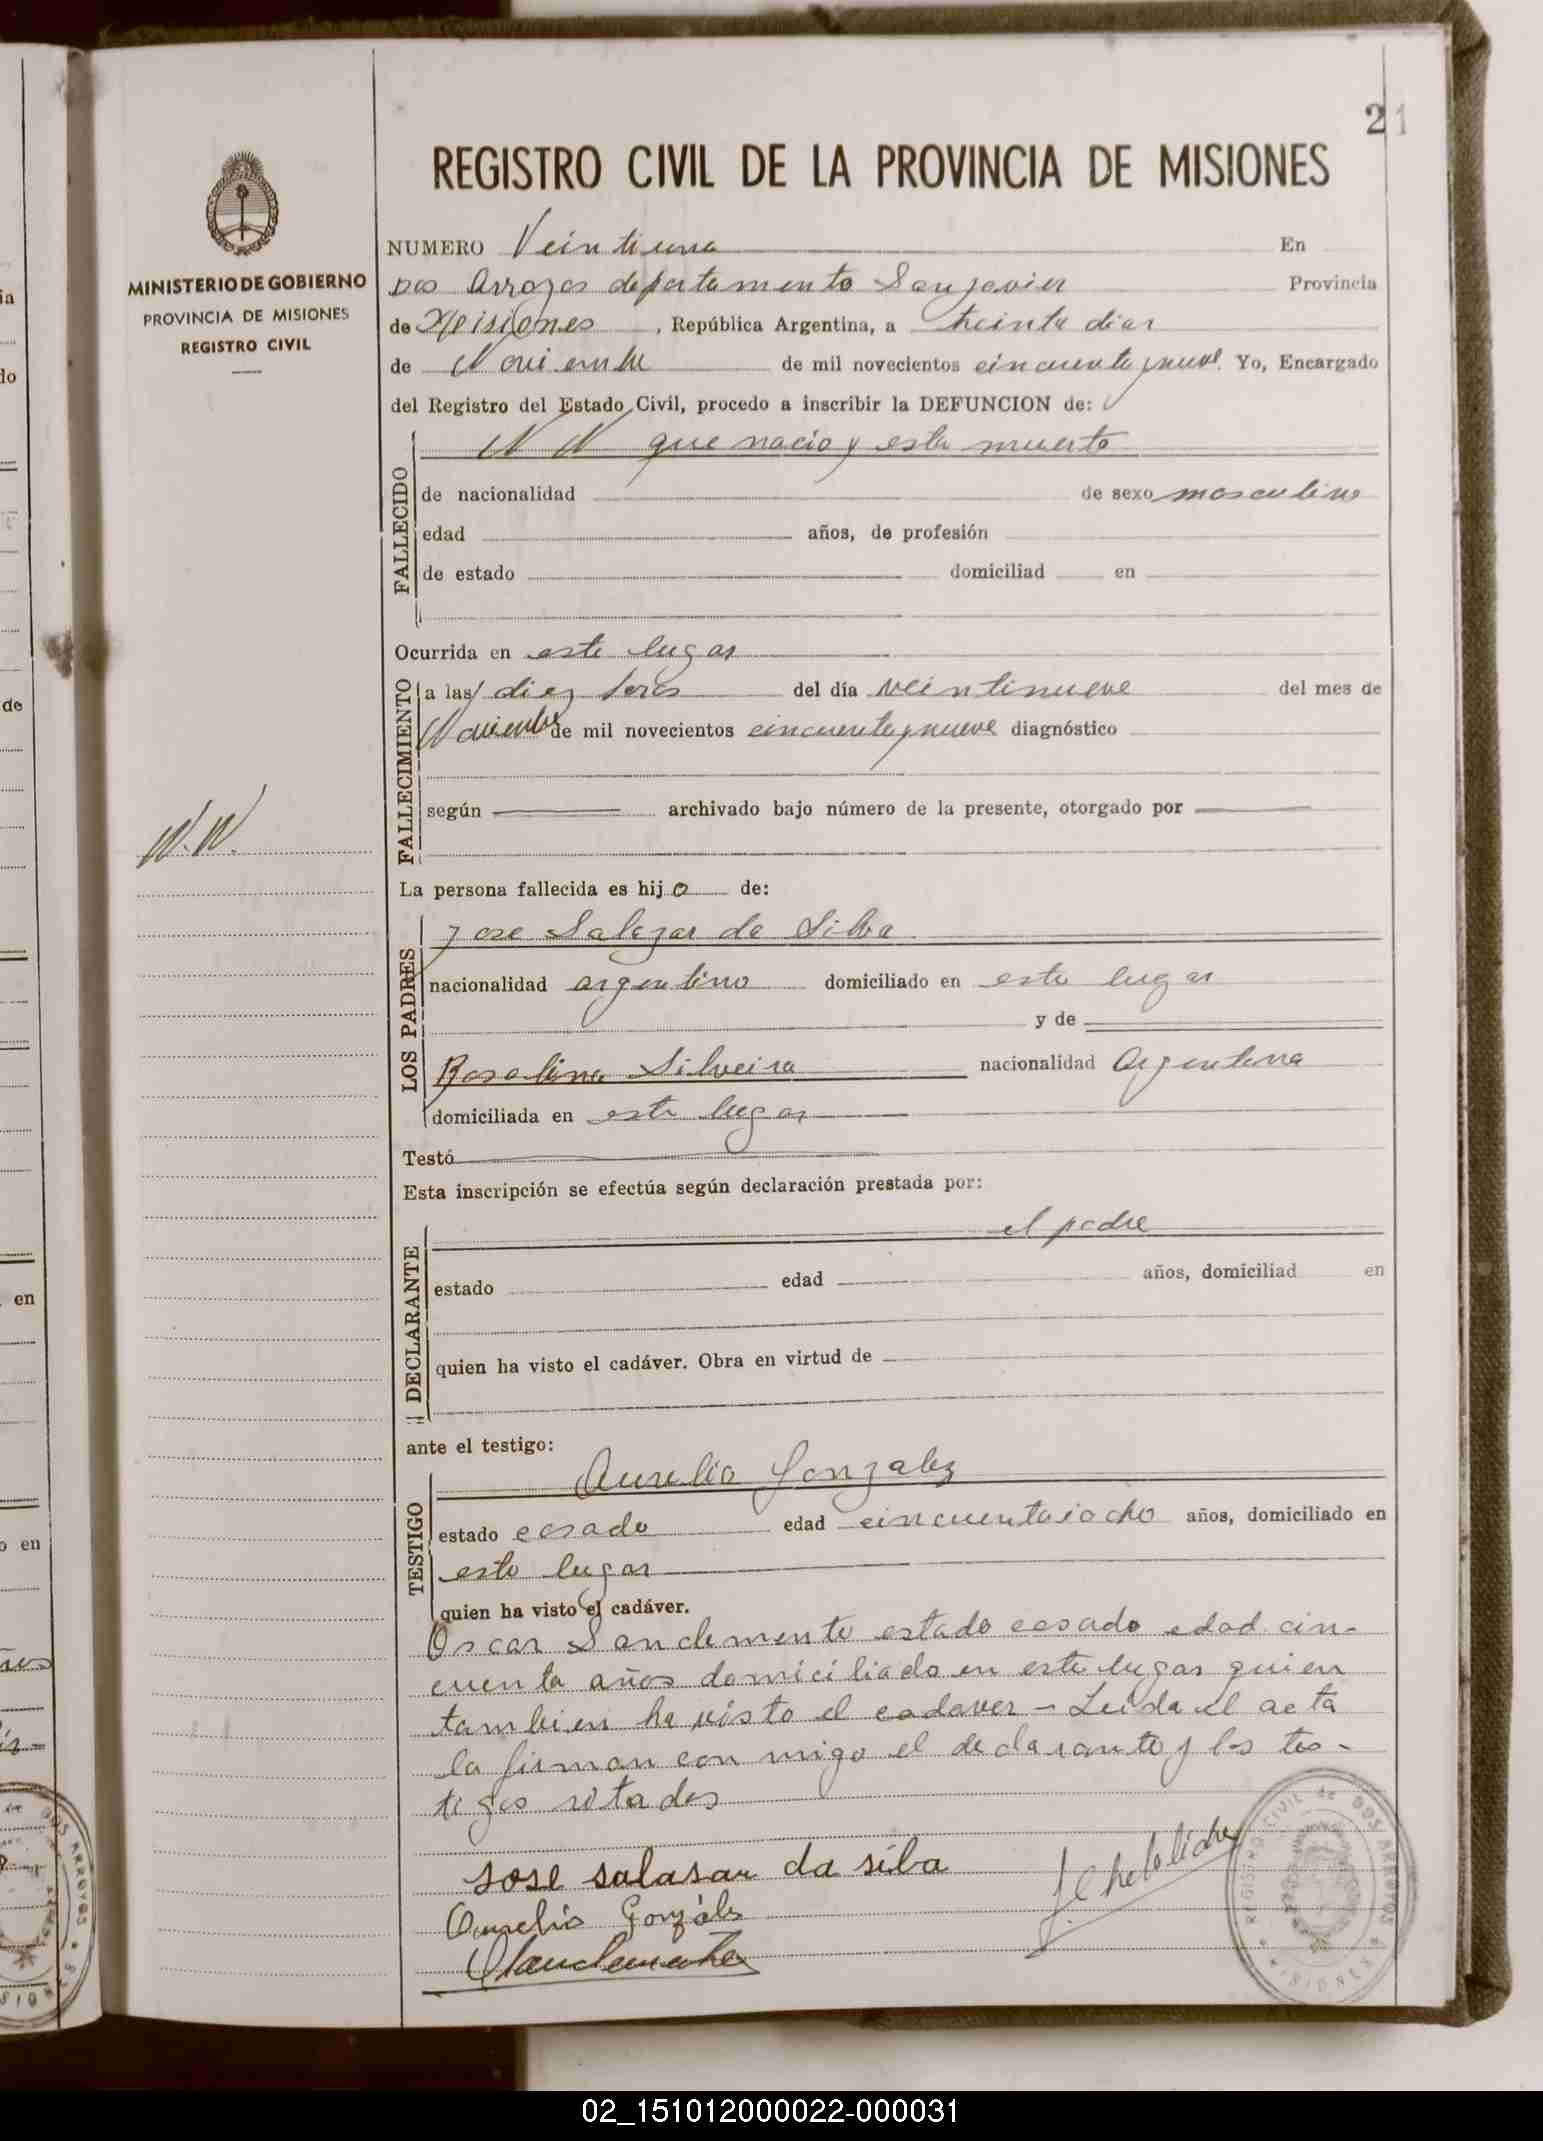 21
REGISTRO CIVIL DE LA PROVINCIA DE MISIONES
MINISTERIO DE GOBIERNO
PROVINCIA DE MISIONES
REGISTRO CIVIL
NUMERO Veintiuna En
Dos Arroyos departamento San Javier Provincia
de Misiones, República Argentina, a treinta dias
de Noviembre de mil novecientos cincuenta y nueve. Yo, Encargado
del Registro del Estado Civil, procedo a inscribir la DEFUNCION de:
FALLECIDO
N N que nacio y esta muerto
de nacionalidad de sexo masculino
edad años, de profesión
de estado domiciliad en
Ocurrida en este lugar
FALLECIMIENTO
a las diez horas del día veintinueve del mes de
Noviembre de mil novecientos cincuenta y nueve diagnóstico
según archivado bajo número de la presente, otorgado por
N.N.
La persona fallecida es hijo de:
LOS PADRES
Jose Salazar da Silba
nacionalidad argentino domiciliado en este lugar
y de
Rosalina Silveira nacionalidad Argentina
domiciliada en este lugar
Testó
Esta inscripción se efectúa según declaración prestada por:
DECLARANTE
el padre
estado edad años, domiciliad en
quien ha visto el cadáver. Obra en virtud de
ante el testigo:
TESTIGO
Aurelio Gonzalez
estado casado edad cincuentaiocho años, domiciliado en
este lugar
quien ha visto el cadáver.
Oscar Sanclemente estado casado edad cin-
cuenta años domiciliado en este lugar quien
tambien ha visto el cadaver - Leida el acta
la firman con migo el declarante y los tes-
tigos sitados
Jose salasar da silba
Aurelio Gonzáles
REGISTRO CIVIL de DOS ARROYOS
MISIONES
02_151012000022-000031